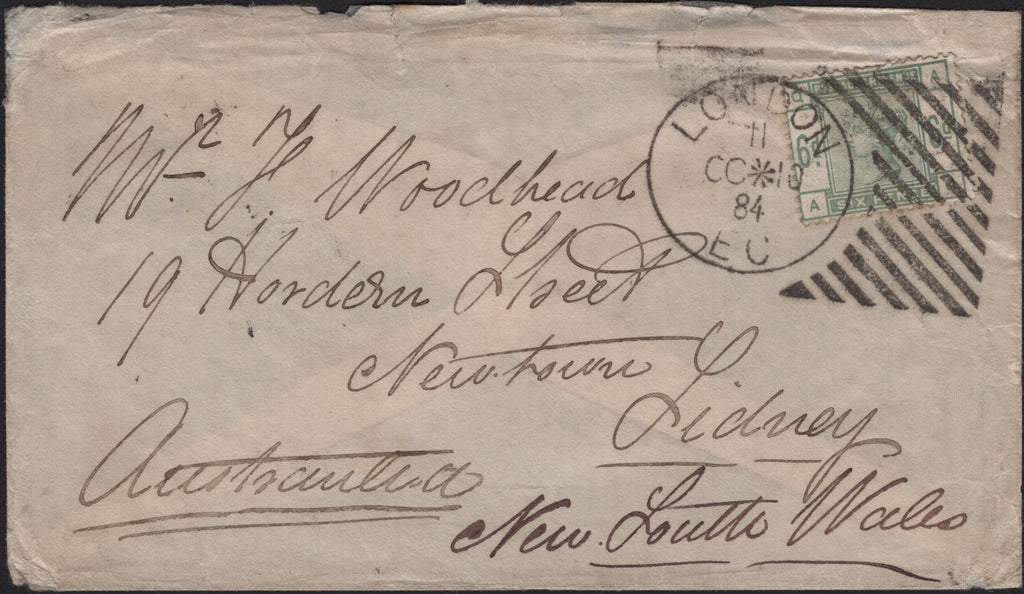 LONDON
11
OC 10
84
E C
6d
6d
A
A
SIX
Mr. F Woodhead
19 Hordern Street
Newtown
Sidney
Australia
New South Wales